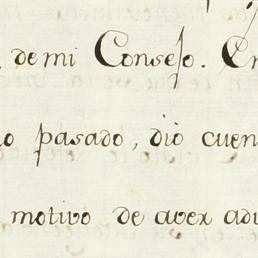 de mi Consejo. En
o pasado, dió cuen
motivo de aver adu